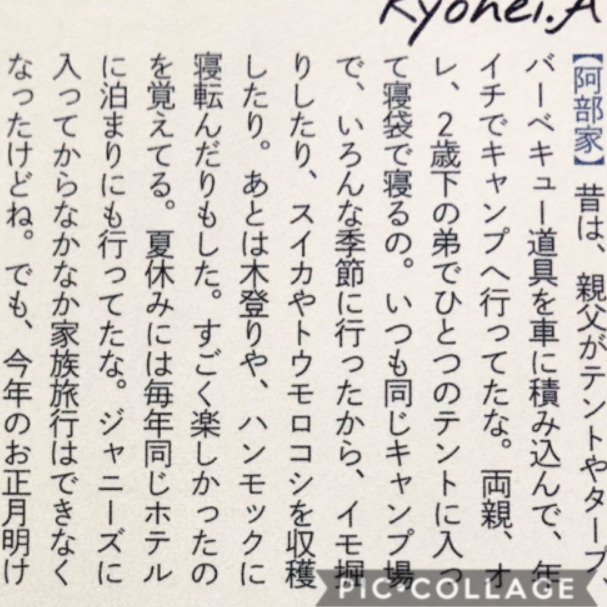 Kyohei.A
【阿部家】昔は、親父がテントやタープ、
バーベキュー道具を車に積み込んで、年
イチでキャンプへ行ってたな。両親、オ
レ、2歳下の弟でひとつのテントに入っ
て寝袋で寝るの。いつも同じキャンプ場
で、いろんな季節に行ったから、イモ掘
りしたり、スイカやトウモロコシを収穫
したり。あとは木登りや、ハンモックに
寝転んだりもした。すごく楽しかったの
を覚えてる。夏休みには毎年同じホテル
に泊まりにも行ってたな。ジャニーズに
入ってからなかなか家族旅行はできなく
なったけどね。でも、今年のお正月明け
PIC•COLLAGE